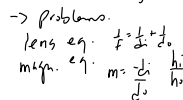 -> problems.
lens eq. 1/f = 1/di + 1/do
magn. eq. m = -di/do hi/ho